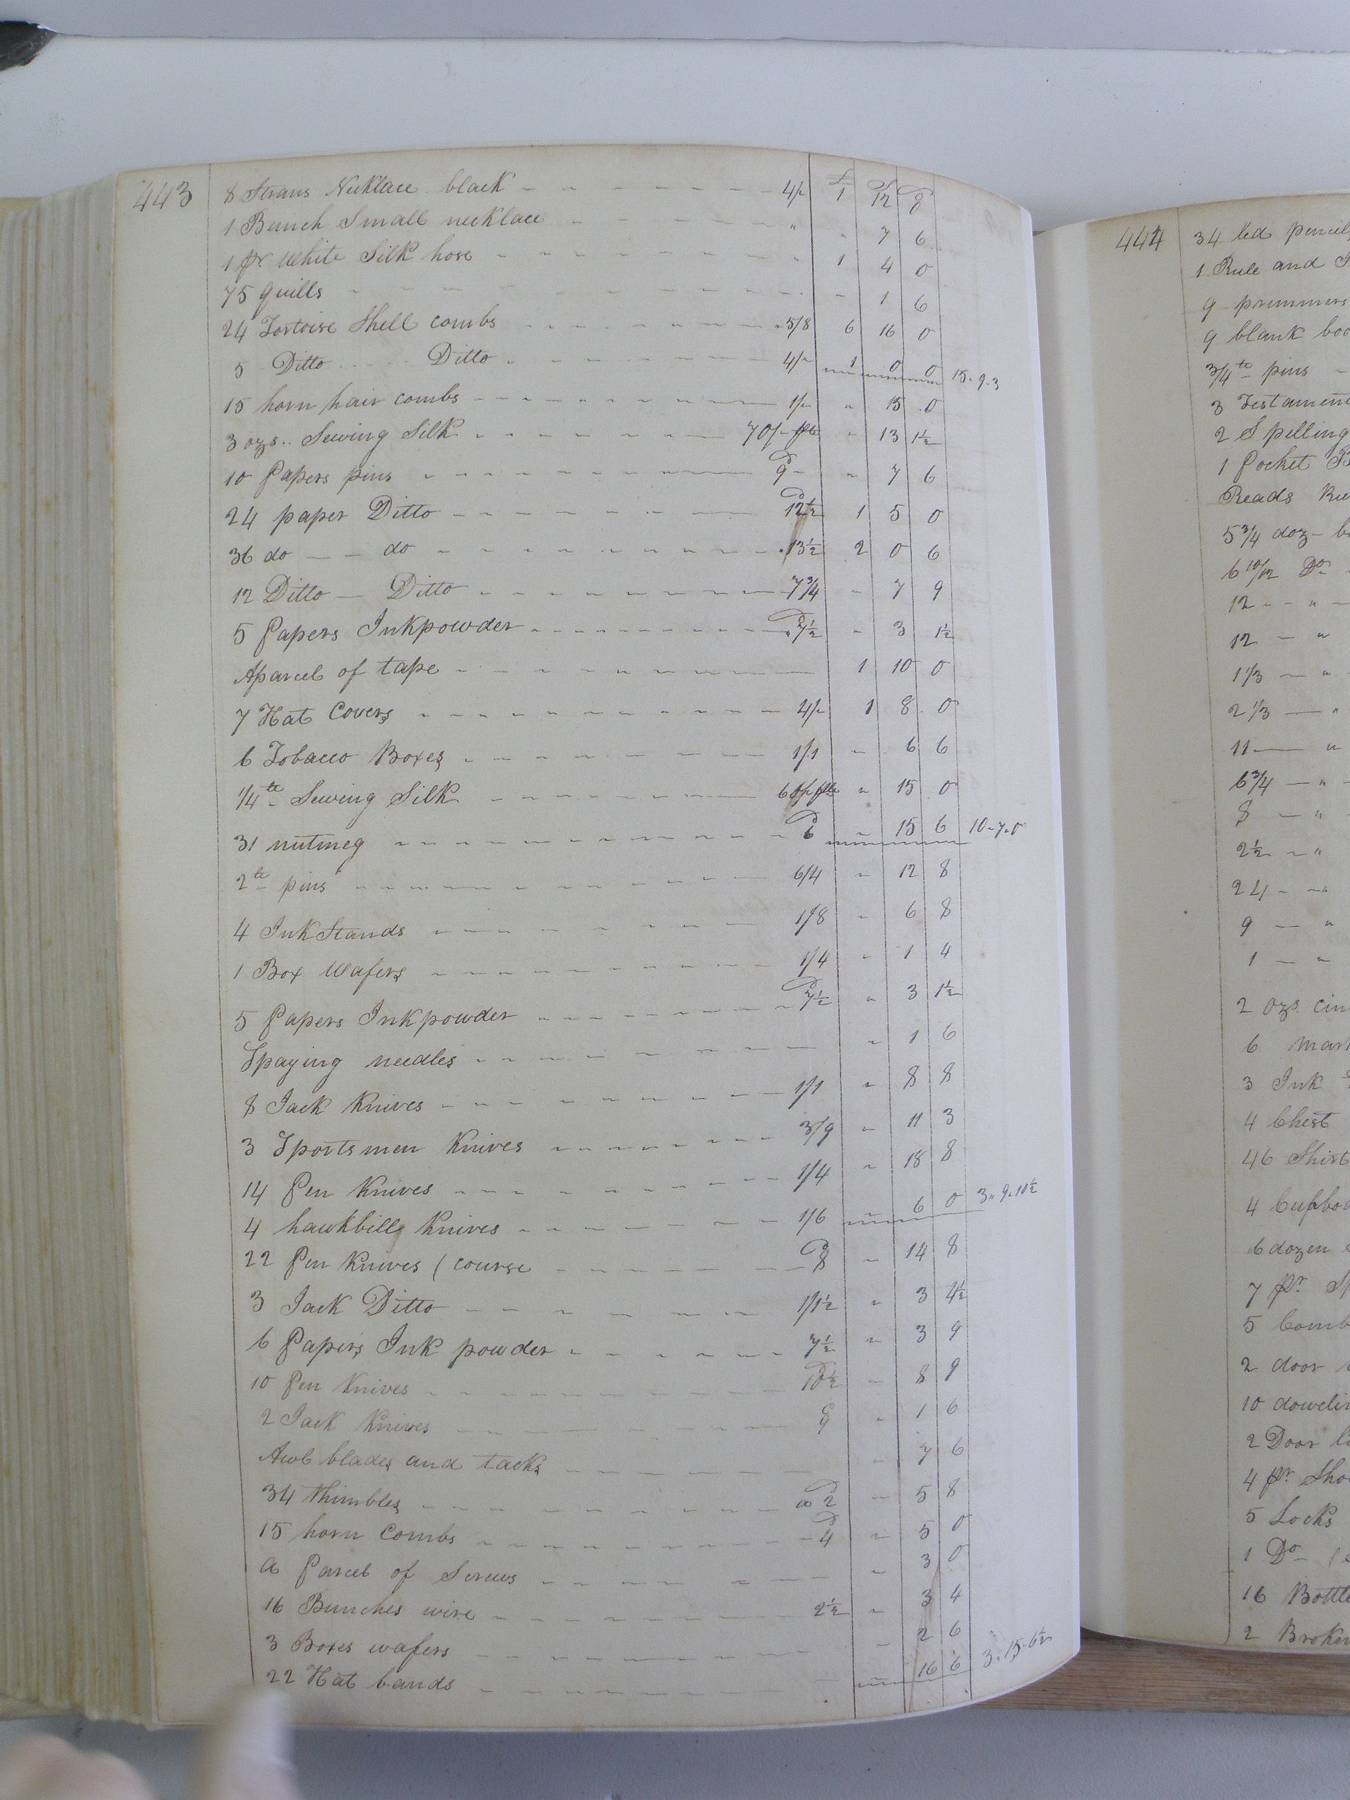 443
8 Strans Necklace black 4/- 1 12 8
1 Bunch Small necklace " - 7 6
1 pr White Silk hose 1 4 0
75 quills - 1 6
24 Tortoise Shell combs 5/8 6 16 0
5 Ditto Ditto 4/- 1 0 0 15.9.3
15 horn hair combs 1/- " 15 0
3 ozs.. Sewing Silk 70/- plb " 13 1½
10 Papers pins 9d " 7 6
24 paper Ditto 12½d 1 5 0
36 do do 13½ 2 0 6
12 Ditto Ditto 7¾ - 7 9
5 Papers Inkpowder 7½d " 3 1½
Aparcel of tape 1 10 0
7 Hat Covers 4/- 1 8 0
6 Tobacco Boxes 1/1 " 6 6
¼ lb Sewing Silk 60/ plb " 15 0
31 nutmeg 6d " 15 6 10.7.0
2 lb pins 6/4 " 12 8
4 Ink Stands 1/8 " 6 8
1 Box Wafers 1/4 " 1 4
5 Papers Inkpowder 7½d " 3 1½
Spaying needles " 1 6
8 Jack Knives 1/1 " 8 8
3 Sportsmen Knives 3/9 " 11 3
14 Pen Knives 1/4 " 18 8
4 hawkbills Knives 1/6 " 6 0 3.9.10½
22 Pen Knives (course 8d " 14 8
3 Jack Ditto 1/1½ " 3 4½
6 Papers Ink powder 7½ " 3 9
10 Pen Knives 10½d " 8 9
2 Jack Knives 9 " 1 6
Awl blades and tacks " 7 6
34 thimbles a 2d " 5 8
15 horn Combs 4d " 5 0
a Parcel of Screws " 3 0
16 Bunches wire 2½ " 3 4
3 Boxes wafers - 2 6
22 Hat bands 16 6 3.15.6½
444
34 led pencils
1 Rule and
9 primmers
9 blank
¾ lb pins
3
2 Spelling
1 Pocket
Reads
5¾ doz
6 10/12 Do
12 "
12 "
1⅓ "
2⅓ "
11 "
6¾ "
8 "
2½ "
24
9 "
1 "
2 ozs
6
3 Ink
4 Chest
46
4
6 dozen
7 pr
5
2 door
10
2 Door
4 pr
5 Locks
1 Do
16
2